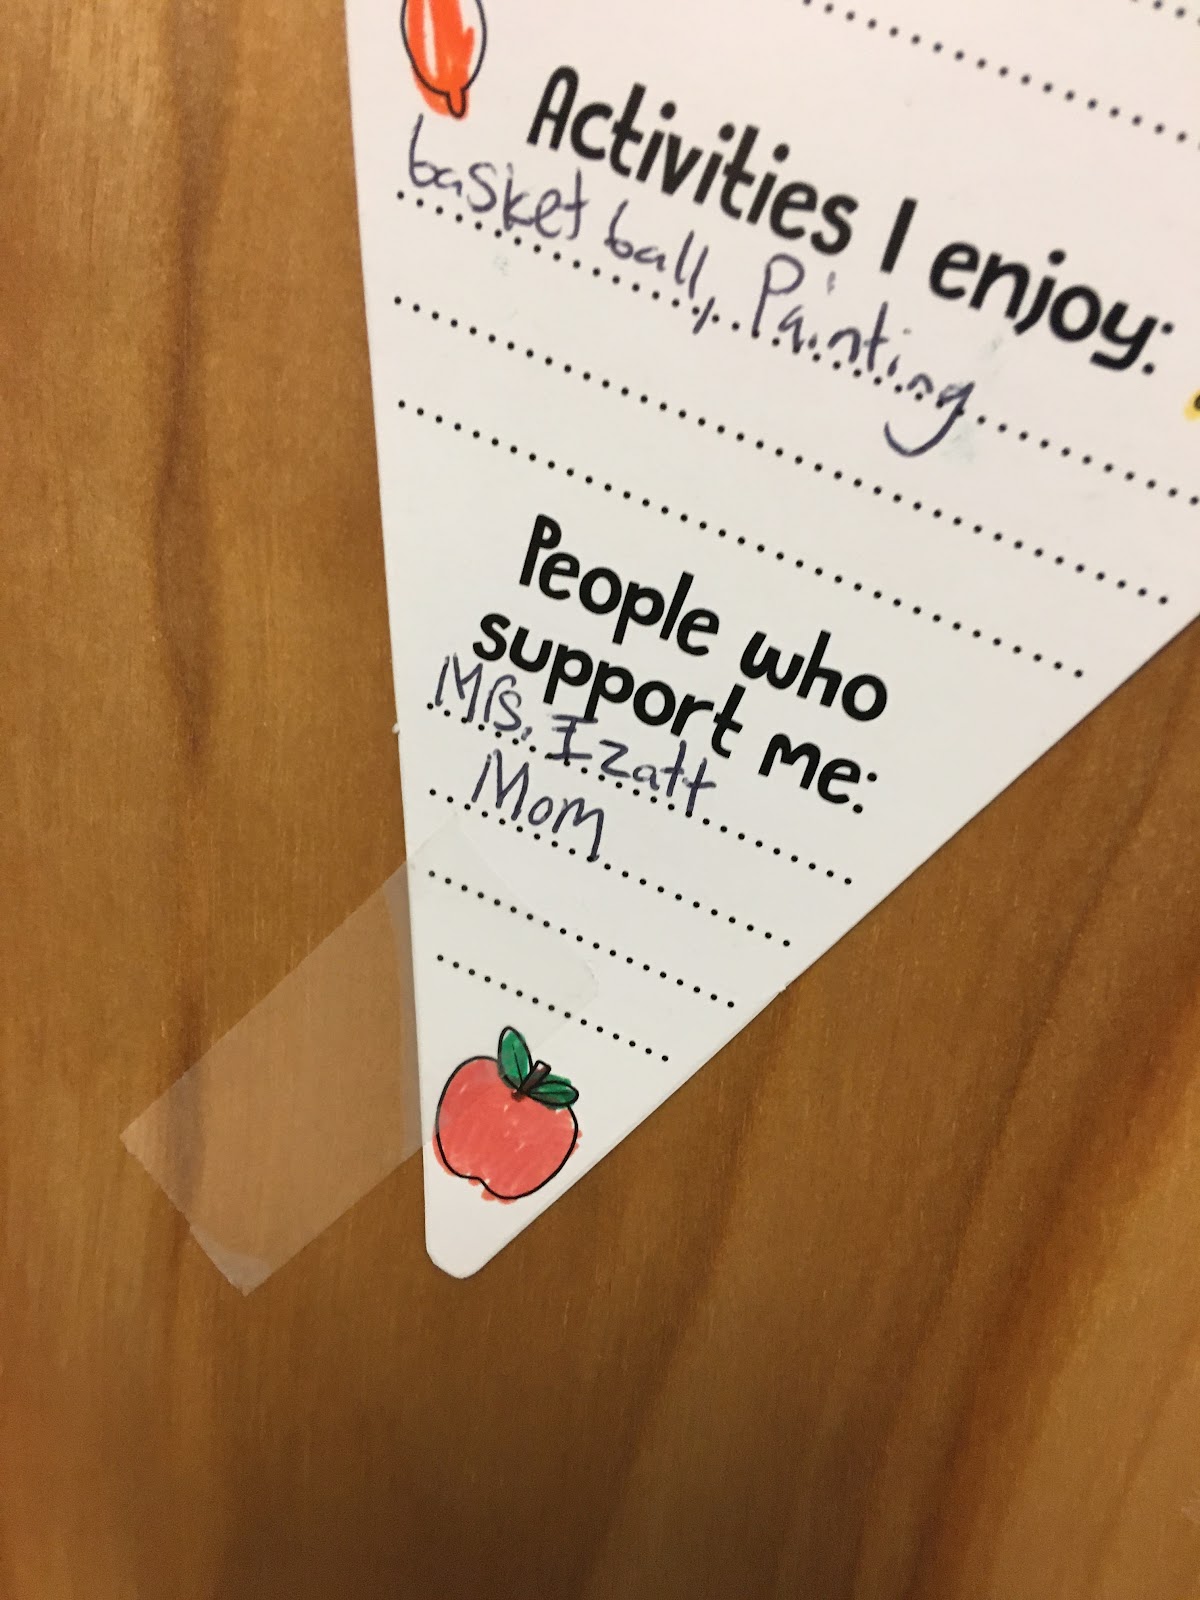 Activities I enjoy:
basket ball, Painting
People who
support me:
Mrs. Izatt
Mom